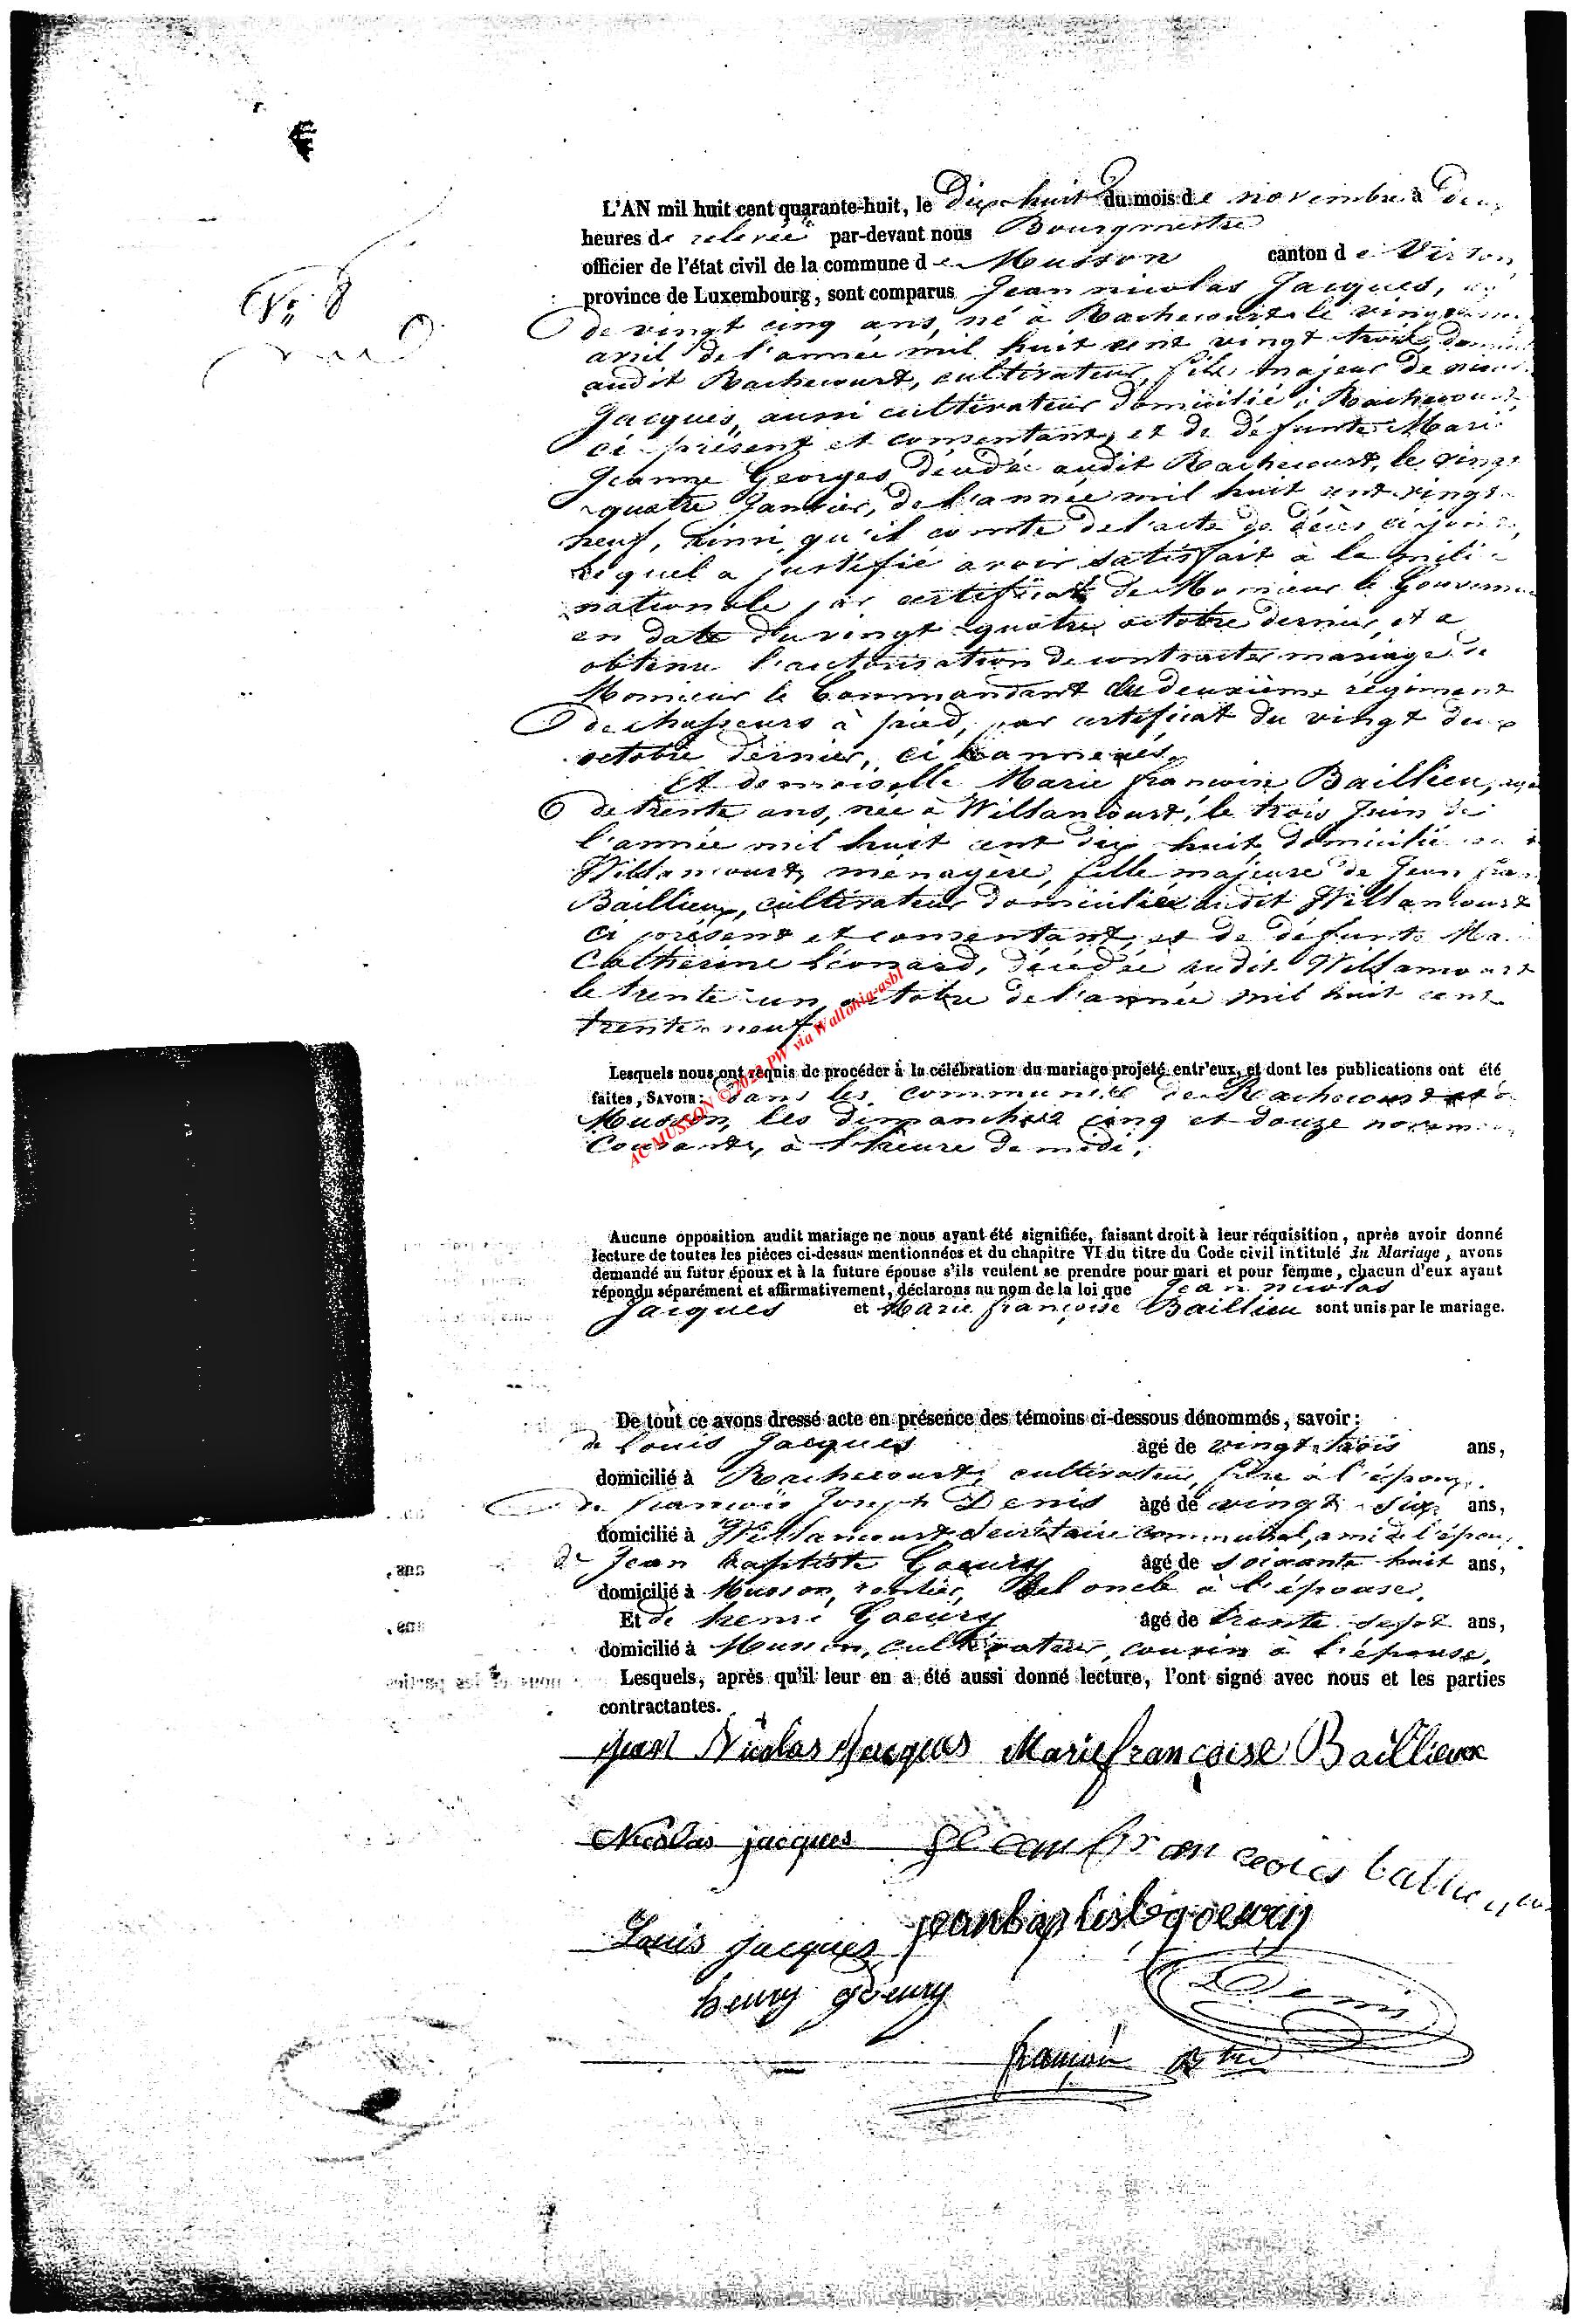 L'AN mil huit cent quarante-huit, le Dix huit du mois de novembre à deux
heures de relevée par-devant nous Bourgmestre
officier de l'état civil de la commune de Musson canton de Virton,
N° 8
province de Luxembourg, sont comparus Jean nicolas Jacques,
de vingt cinq ans, né à Rachecourt le
avril de l'année mil huit cent vingt trois,
audit Rachecourt, cultivateur, fils majeur de
Jacques, aussi cultivateur domicilié à Rachecourt,
ci présent et consentant, et de défunte Marie
Jeanne Georges, décédée audit Rachecourt, le vingt
quatre Janvier, de l'année mil huit cent vingt
neuf, ainsi qu'il conste de l'acte de décès ci joint,
lequel a justifié avoir satisfait à la milice
nationale par certificat de Monsieur le Gouverneur
en date du vingt quatre octobre dernier, et a
obtenu l'autorisation de contracter mariage de
Monsieur le Commandant du deuxième régiment
de chasseurs à pied, par certificat du vingt deux
octobre dernier, ci annexés.
Et demoiselle Marie françoise Baillieu,
de trente ans, née à Willancourt, le trois Juin de
l'année mil huit cent dix huit domiciliée
Willancourt, ménagère, fille majeure de Jean
Baillieux, cultivateur domicilié audit Willancourt
ci présent et consentant, et de défunte
Catherine Léonard, décédée audit Willancourt
le trente un octobre de l'année mil huit cent
trente neuf.
Lesquels nous ont requis de procéder à la célébration du mariage projeté entr'eux, et dont les publications ont été
faites, SAVOIR: dans les communes de Rachecourt et
Musson, les dimanches cinq et douze novembre
Courant, à l'heure de midi.
AC MUSSON ©2022 PW via Wallonia-asbl
Aucune opposition audit mariage ne nous ayant été signifiée, faisant droit à leur réquisition, après avoir donné
lecture de toutes les pièces ci-dessus mentionnées et du chapitre VI du titre du Code civil intitulé Du Mariage, avons
demandé au futur époux et à la future épouse s'ils veulent se prendre pour mari et pour femme, chacun d'eux ayant
répondu séparément et affirmativement, déclarons au nom de la loi que Jean nicolas
Jacques et Marie françoise Baillieu sont unis par le mariage.
De tout ce avons dressé acte en présence des témoins ci-dessous dénommés, savoir:
de Louis Jacques âgé de vingt trois ans,
domicilié à Rachecourt, cultivateur, frère à l'époux,
de françois Joseph Denis âgé de vingt six ans,
domicilié à Willancourt, Secrétaire communal, ami de l'époux,
de Jean baptiste Goeury âgé de soixante huit ans,
domicilié à Musson, rentier, bel oncle à l'épouse,
Et de henri Goeury âgé de trente sept ans,
domicilié à Musson, cultivateur, cousin à l'épouse,
Lesquels, après qu'il leur en a été aussi donné lecture, l'ont signé avec nous et les parties
contractantes.
Jean Nicolas Jacques Marie françoise Baillieux
Nicolas jacques Jean françois
Louis jacques jean baptiste goeury
henry goeury Denis
françois